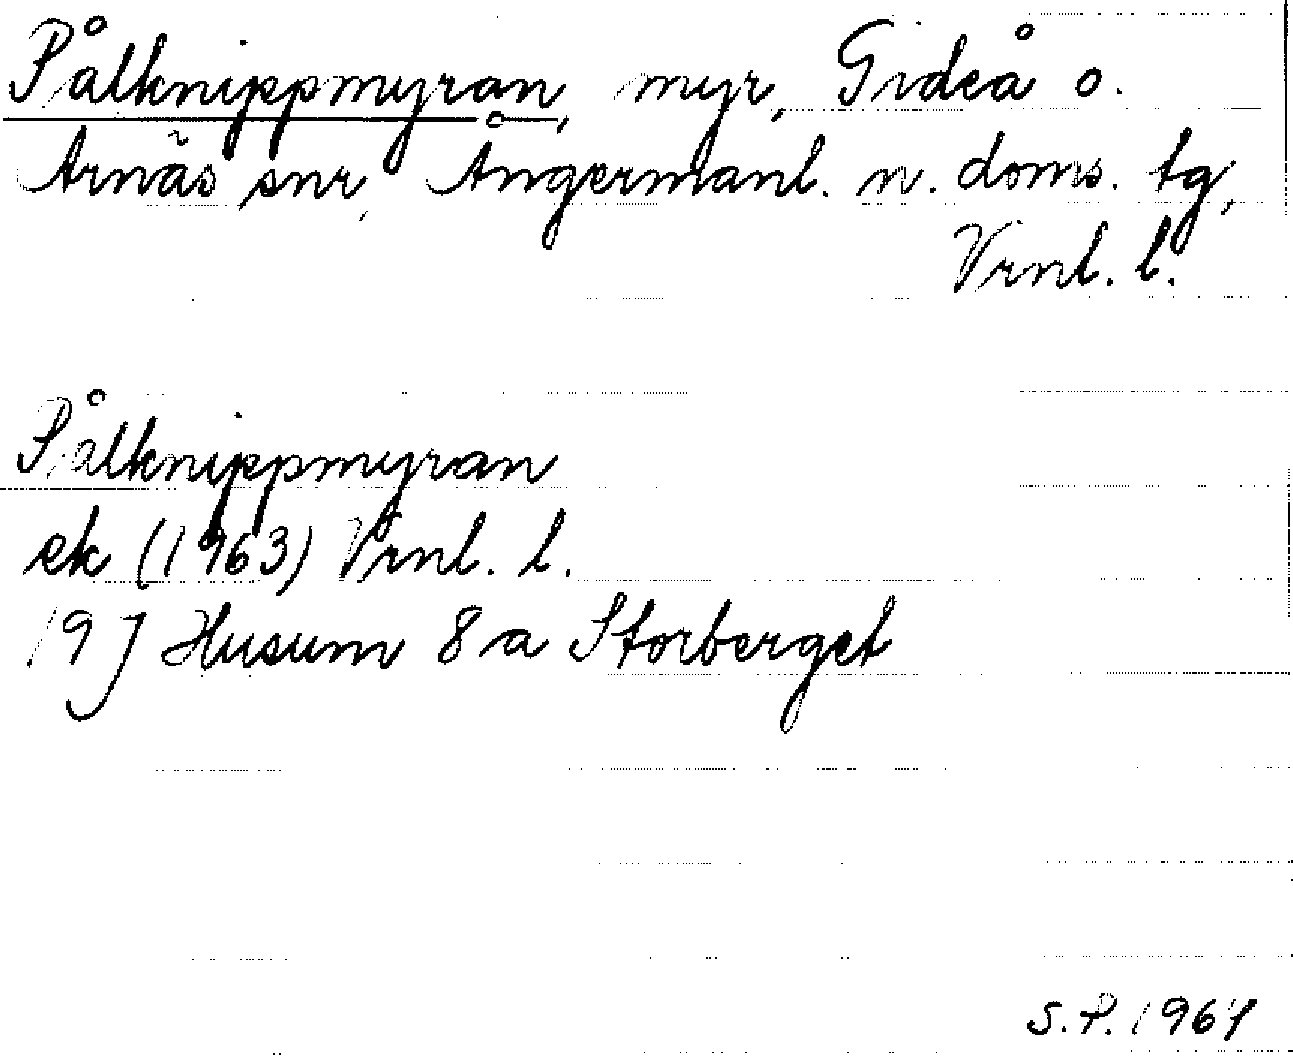 Pålknippmyran, myr, Gideå o.
Arnäs snr, Ångermanl. n. doms. tg,
Vrnl. l.
Pålknippmyran
ek (1963) Vrnl. l.
19 J Husum 8 a Storberget
S.P. 1967